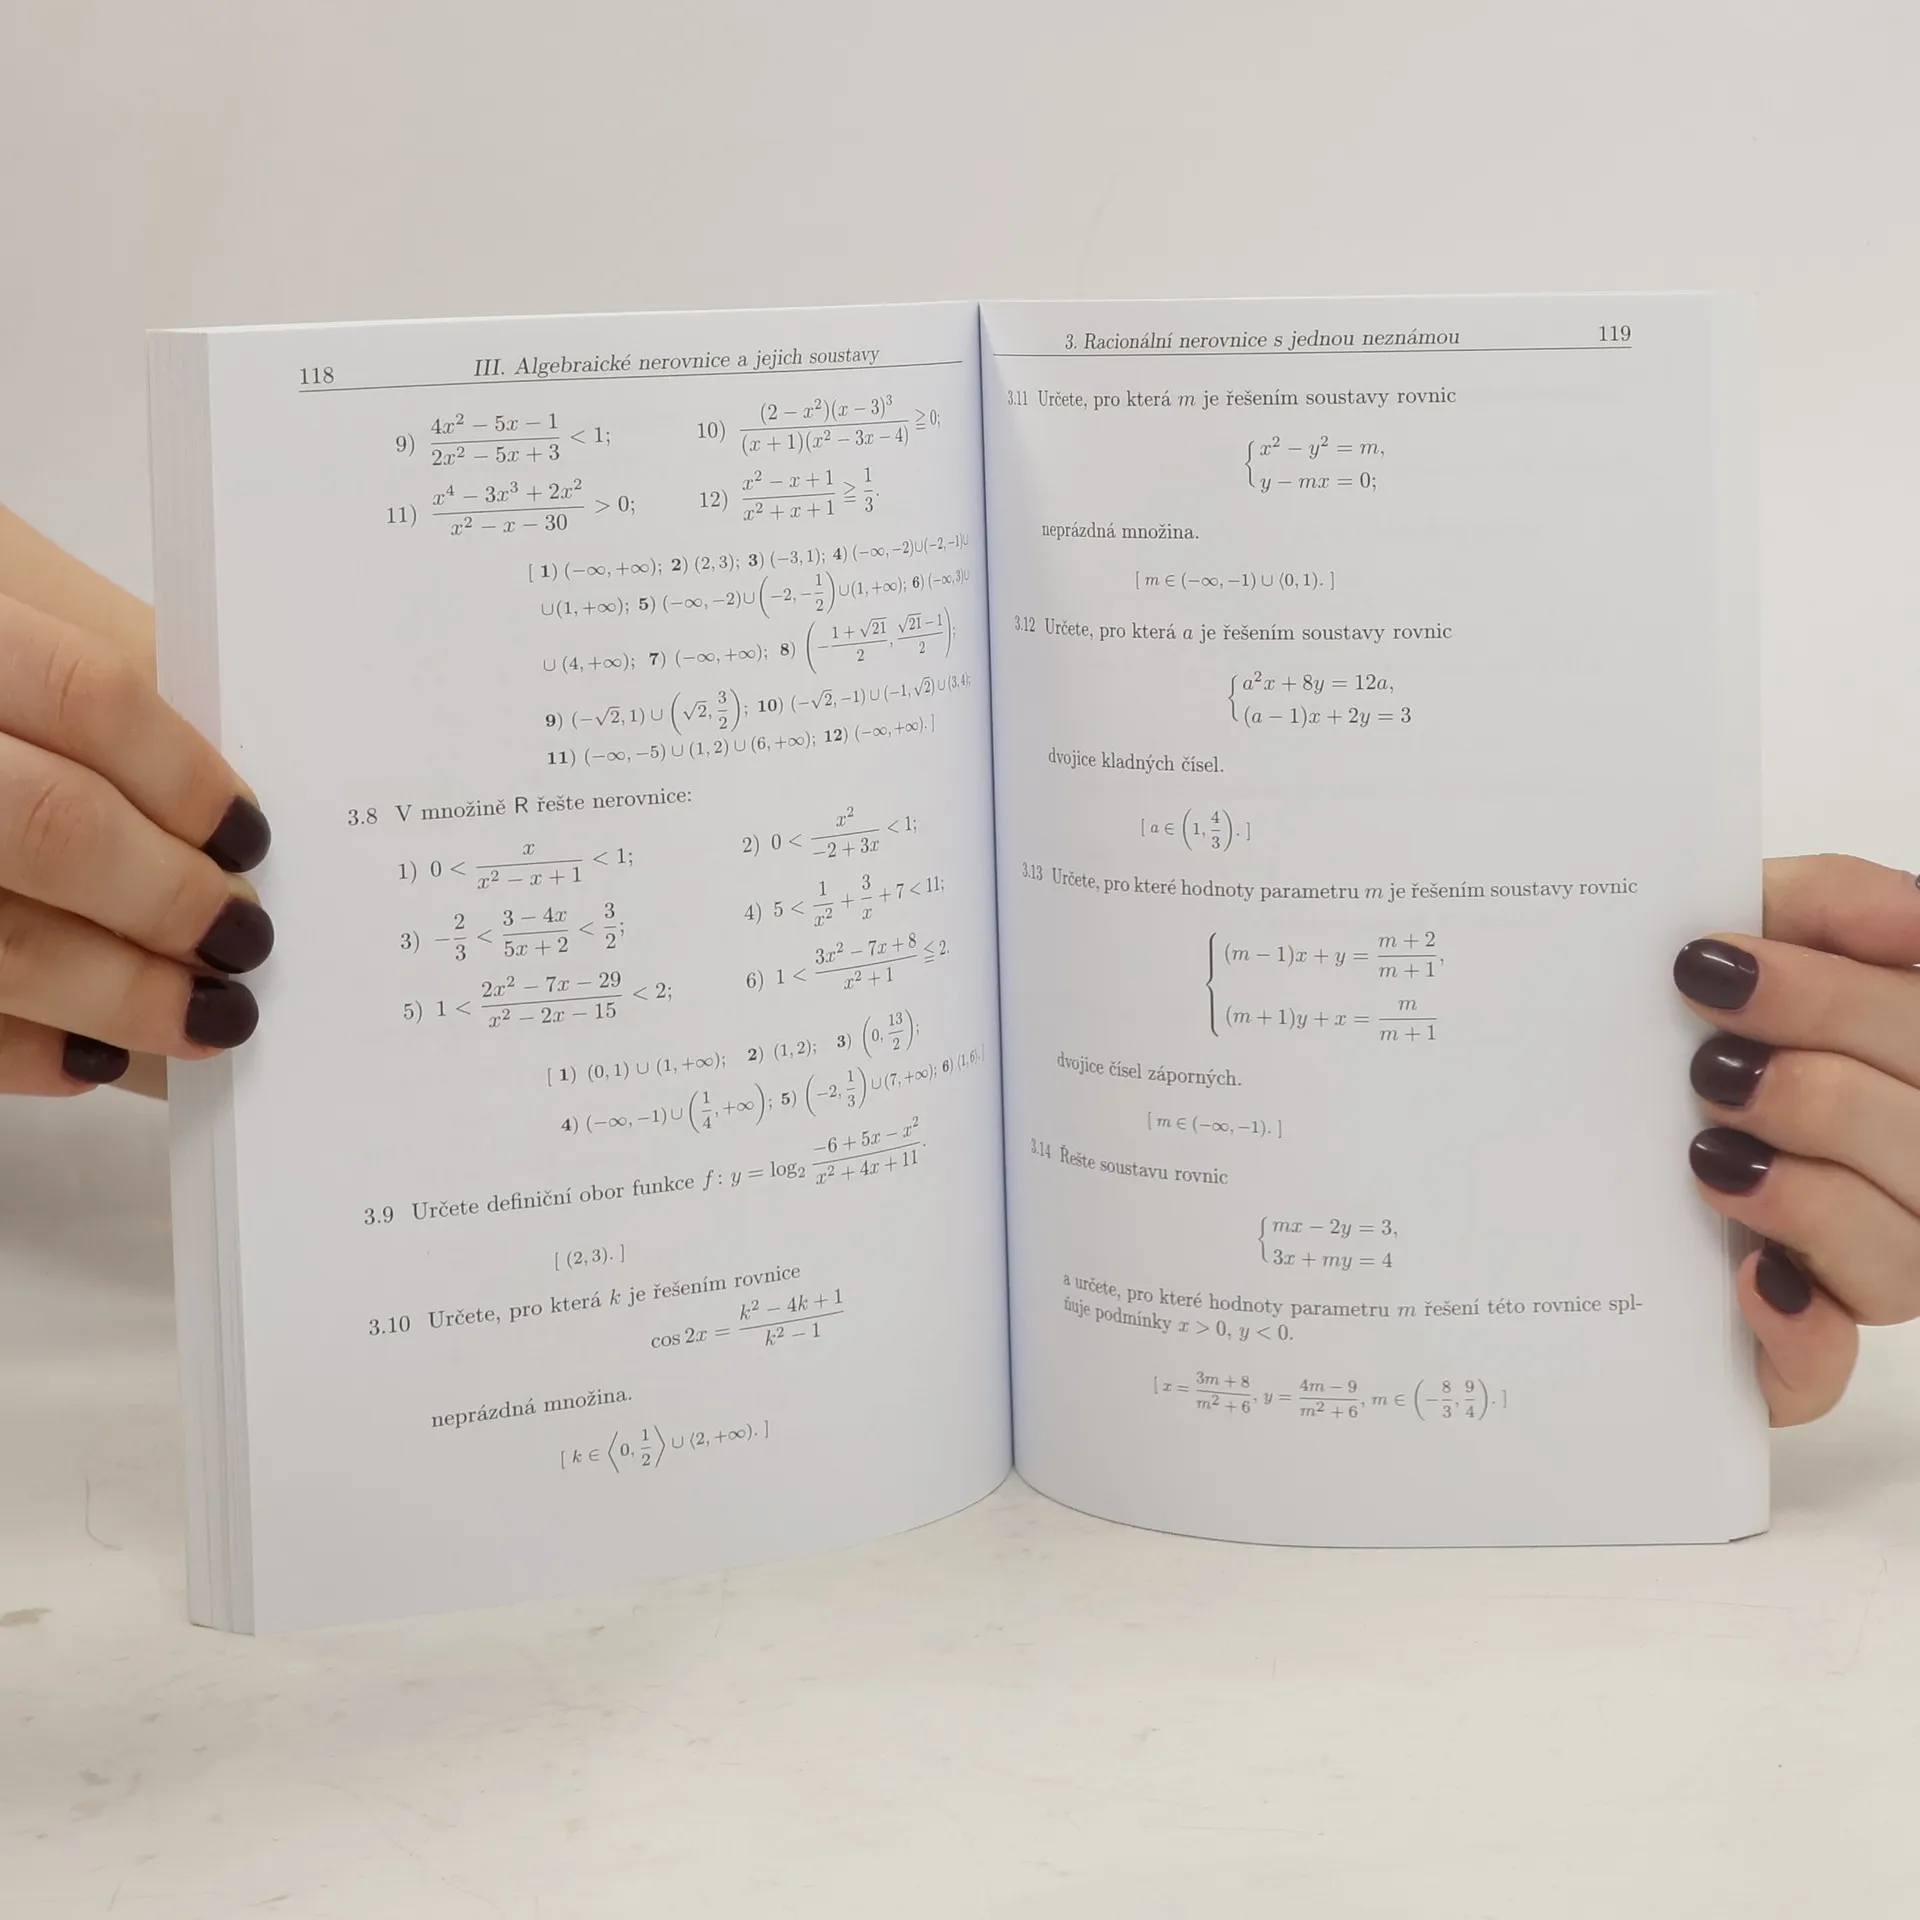 118 III. Algebraické nerovnice a jejich soustavy
9) \frac{4x^2 - 5x - 1}{2x^2 - 5x + 3} < 1; 10) \frac{(2 - x^2)(x - 3)^3}{(x + 1)(x^2 - 3x - 4)} ≧ 0;
11) \frac{x^4 - 3x^3 + 2x^2}{x^2 - x - 30} > 0; 12) \frac{x^2 - x + 1}{x^2 + x + 1} ≧ \frac{1}{3}.
[ 1) (−∞, +∞); 2) (2, 3); 3) (−3, 1); 4) (−∞, −2)∪(−2, −1)∪
∪(1, +∞); 5) (−∞, −2)∪(−2, −\frac{1}{2})∪(1, +∞); 6) (−∞, 3)∪
∪ (4, +∞); 7) (−∞, +∞); 8) (−\frac{1 + √21}{2}, \frac{√21 − 1}{2});
9) (−√2, 1) ∪ (√2, \frac{3}{2}); 10) (−√2, −1) ∪ (−1, √2) ∪ (3, 4);
11) (−∞, −5) ∪ (1, 2) ∪ (6, +∞); 12) (−∞, +∞). ]
3.8 V množině R řešte nerovnice:
1) 0 < \frac{x}{x^2 - x + 1} < 1; 2) 0 < \frac{x^2}{-2 + 3x} < 1;
3) −\frac{2}{3} < \frac{3 - 4x}{5x + 2} < \frac{3}{2}; 4) 5 < \frac{1}{x^2} + \frac{3}{x} + 7 < 11;
5) 1 < \frac{2x^2 - 7x - 29}{x^2 - 2x - 15} < 2; 6) 1 < \frac{3x^2 - 7x + 8}{x^2 + 1} ≦ 2.
[ 1) (0, 1) ∪ (1, +∞); 2) (1, 2); 3) (0, \frac{13}{2});
4) (−∞, −1)∪(\frac{1}{4}, +∞); 5) (−2, \frac{1}{3})∪(7, +∞); 6) (1, 6). ]
3.9 Určete definiční obor funkce f: y = log_2 \frac{-6 + 5x - x^2}{x^2 + 4x + 11}.
[ (2, 3). ]
3.10 Určete, pro která k je řešením rovnice
cos 2x = \frac{k^2 - 4k + 1}{k^2 - 1}
neprázdná množina.
[ k ∈ ⟨0, \frac{1}{2}⟩ ∪ ⟨2, +∞). ]
3. Racionální nerovnice s jednou neznámou 119
3.11 Určete, pro která m je řešením soustavy rovnic
x^2 − y^2 = m,
y − mx = 0;
neprázdná množina.
[ m ∈ (−∞, −1) ∪ ⟨0, 1). ]
3.12 Určete, pro která a je řešením soustavy rovnic
a^2x + 8y = 12a,
(a − 1)x + 2y = 3
dvojice kladných čísel.
[ a ∈ (1, \frac{4}{3}). ]
3.13 Určete, pro které hodnoty parametru m je řešením soustavy rovnic
(m − 1)x + y = \frac{m + 2}{m + 1},
(m + 1)y + x = \frac{m}{m + 1}
dvojice čísel záporných.
[ m ∈ (−∞, −1). ]
3.14 Řešte soustavu rovnic
mx − 2y = 3,
3x + my = 4
a určete, pro které hodnoty parametru m řešení této rovnice spl-
ňuje podmínky x > 0, y < 0.
[ x = \frac{3m + 8}{m^2 + 6}, y = \frac{4m − 9}{m^2 + 6}, m ∈ (−\frac{8}{3}, \frac{9}{4}). ]